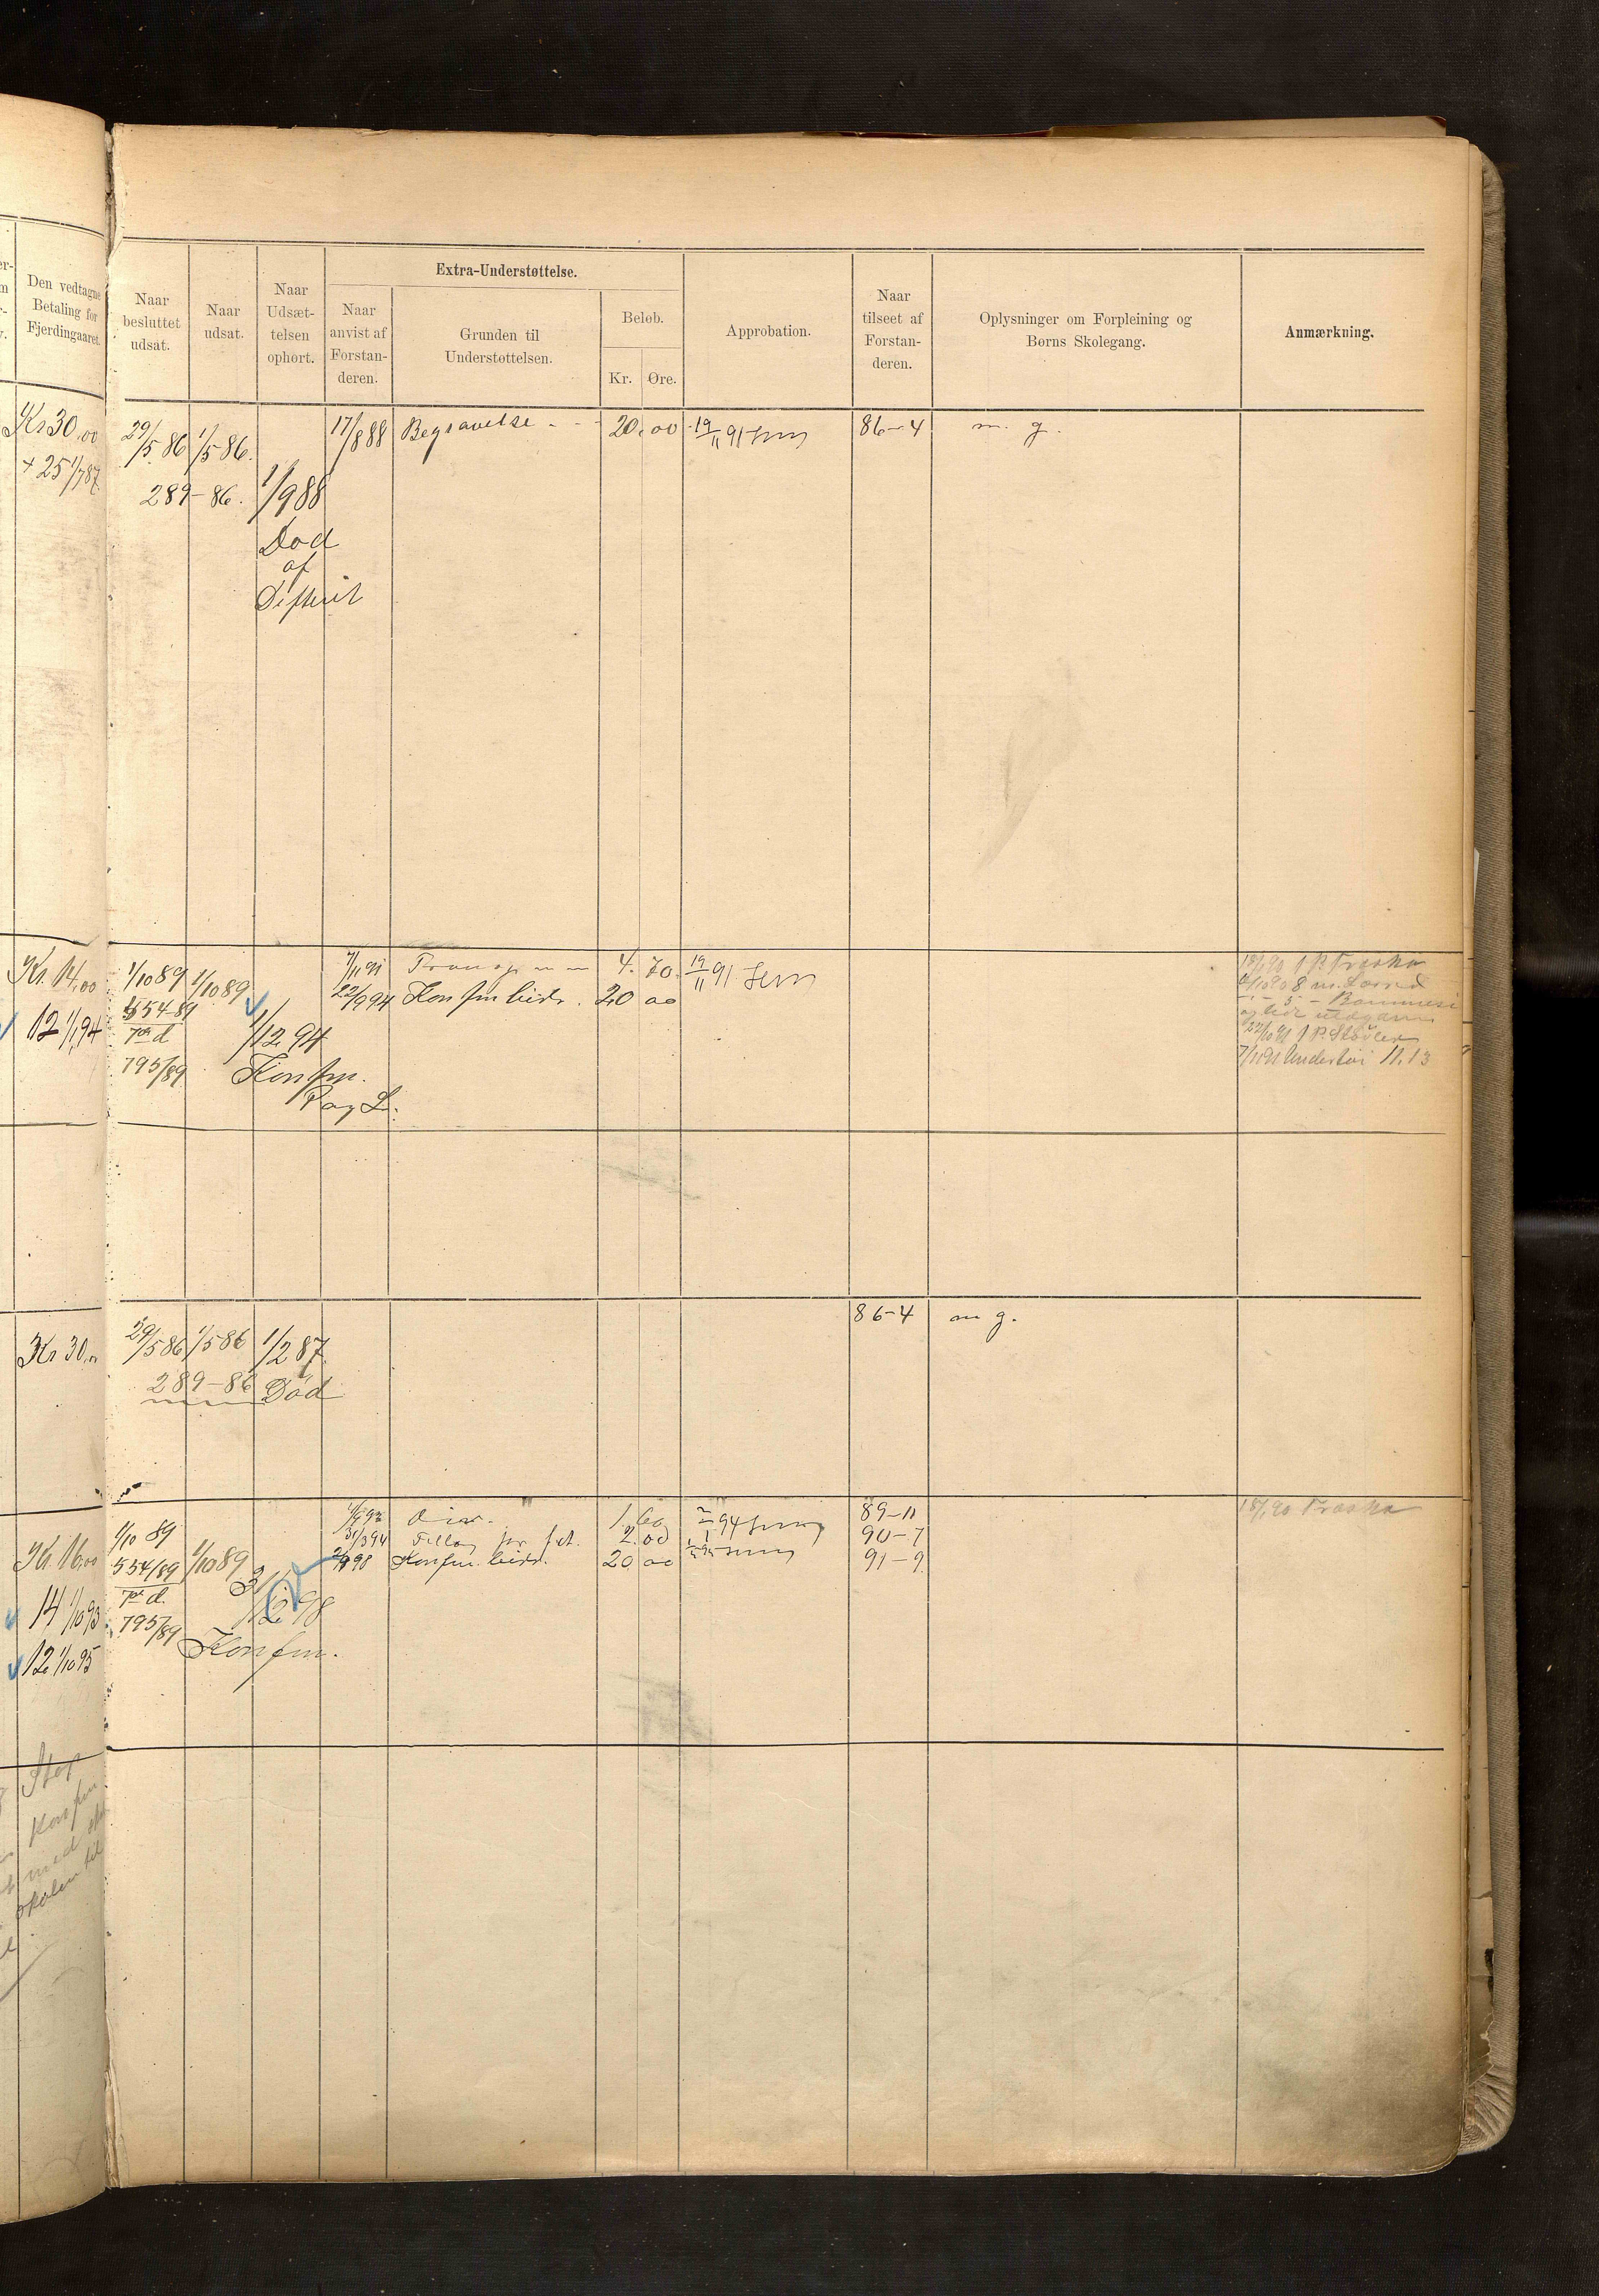 Den vedtagne
Betaling for
Fjerdingaaret.
Naar
besluttet
udsat.
Naar
udsat.
Naar
Udsæt-
telsen
ophørt.
Extra-Understøttelse.
Naar
anvist af
Forstan-
deren.
Grunden til
Understøttelsen.
Beløb.
Kr.
Øre.
Approbation.
Naar
tilseet af
Forstan-
deren.
Oplysninger om Forpleining og
Børns Skolegang.
Anmærkning.
Kr 30,00
+ 25 1/7 87.
29/5 86
1/5 86.
17/8 88
Begravelse
20,00
19/11 91
86-4
m. g.
289-86.
1/9 88
Død
af
Difterit
Kr. 14,00
12 1/1 94
1/10 89
1/10 89
7/11 91
4. 70.
19/11 91
554-89
22/9 94
20 00
795/89
1/12 94
Konfm.
1 P. Træsko
22/10 91 1 P. Støvler
7/11 91 Undertøi 11.13
Kr 30,00
29/5 86
1/5 86
1/2 87
86-4
m g.
289-86
Død
Kr. 16,00
14 1/10 93
12 1/10 95
1/10 89
1/10 89
554/89
795/89
1.60
89-11
31/3 94
2.00
90-7
Konfm. bidr.
20 00
91-9
3/12 98
Konfm.
Træsko